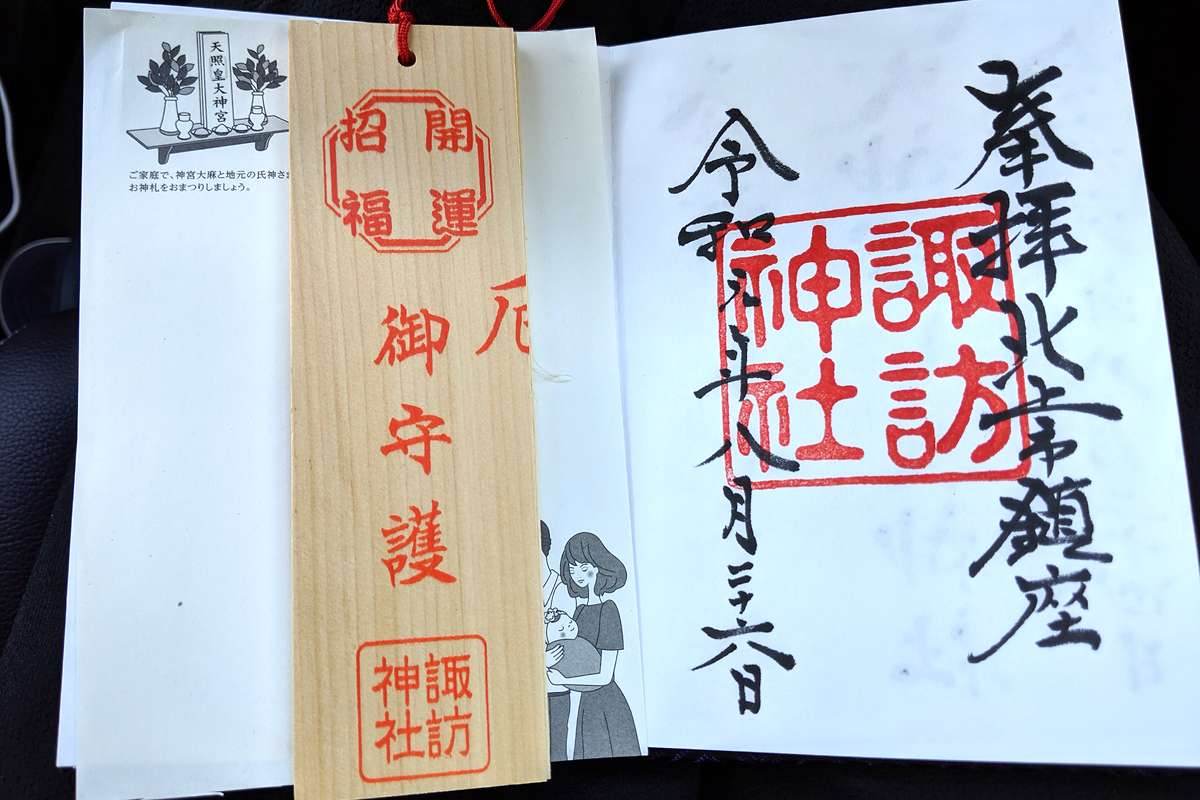 天照皇大神宮
ご家庭で、神宮大麻と地元の氏神さ
お神札をおまつりしましょう。
開運
招福
御守護
諏訪
神社
厄
奉拝北常鎮座
諏訪
神社
令和元年八月二十六日